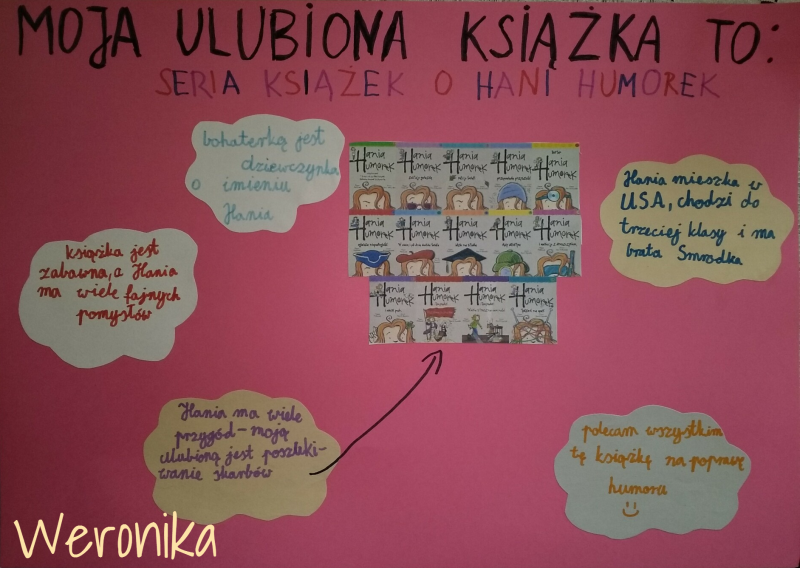 MOJA ULUBIONA KSIĄŻKA TO:
SERIA KSIĄŻEK O HANI HUMOREK
bohaterką jest
dziewczynka
o imieniu
Hania
Hania mieszka w
USA, chodzi do
trzeciej klasy i ma
brata Smrodka
książka jest
zabawna, a Hania
ma wiele fajnych
pomysłów
Hania Humorek
Hania Humorek
Hania Humorek
Hania Humorek
Hania Humorek
Hania Humorek
Hania Humorek
Hania Humorek
Hania Humorek
Hania Humorek
Hania Humorek
Hania Humorek
Hania Humorek
Hania Humorek
Hania ma wiele
przygód – moją
ulubioną jest poszuki-
wanie skarbów
polecam wszystkim
tę książkę na poprawę
humoru
Weronika